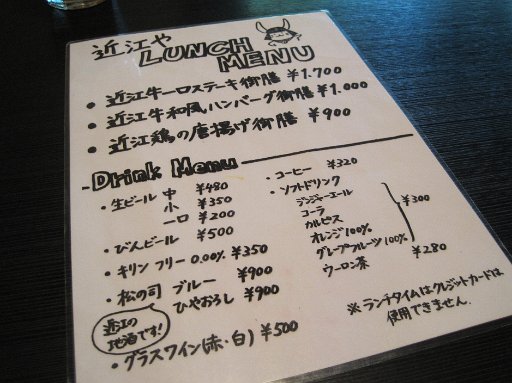 近江や LUNCH MENU
● 近江牛一口ステーキ御膳 ¥1.700
● 近江牛和風ハンバーグ御膳 ¥1.000
● 近江鶏の唐揚げ御膳 ¥900
Drink Menu
・生ビール 中 ¥480
小 ¥350
一口 ¥200
・びんビール ¥500
・キリン フリー 0.00% ¥350
・松の司 ブルー ¥900
ひやおろし ¥900
近江の地酒です!
・グラスワイン(赤・白) ¥500
・コーヒー ¥320
・ソフトドリンク
ジンジャーエール
コーラ
カルピス
オレンジ100%
グレープフルーツ100%
¥300
ウーロン茶 ¥280
※ランチタイムはクレジットカードは
使用できません.